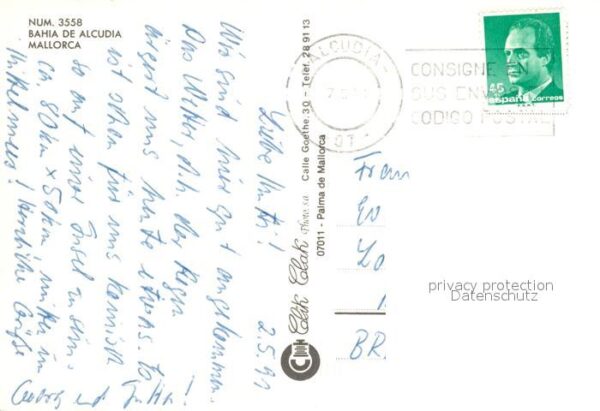 NUM. 3558
BAHIA DE ALCUDIA
MALLORCA
2.5.91
Wir sind hier gut angekommen.
Das Wetter, d.h. der Regen
ärgert uns heute etwas. Es
ist schon für uns komisch
so auf einer Insel zu sein.
ca. 80km x 50km mitten im
Mittelmeer! Herzliche Grüße
und
Clik Clak Photo, s.a.
Calle Goethe, 30 - Telef. 28 91 13
07011 - Palma de Mallorca
ALCUDIA
CONSIGNE EN
SUS ENVIOS
CODIGO POSTAL
45
españa correos
Frau
BR
privacy protection
Datenschutz